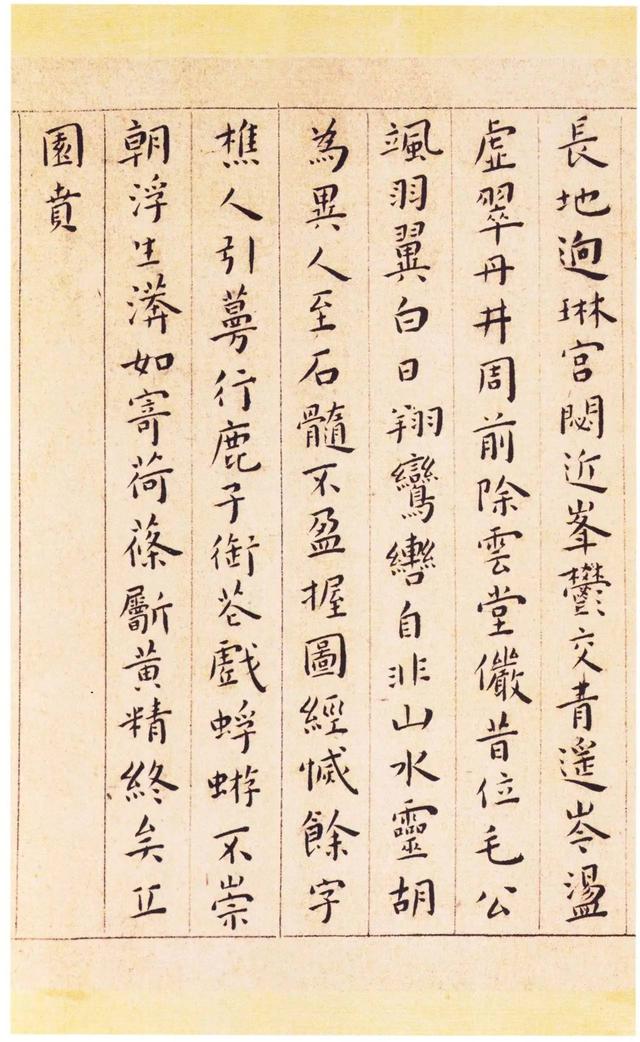 長地迥琳宮閟近峯鬱交青遥岑盪
虛翠丹井周前除雲堂儼昔位毛公
颯羽翼白日翔鸞轡自非山水靈胡
為異人至石髓不盈握圖經憾餘字
樵人引蔓行鹿子銜花戲蜉蝣不崇
朝浮生漭如寄荷蓧斸黄精終矣丘
園賁